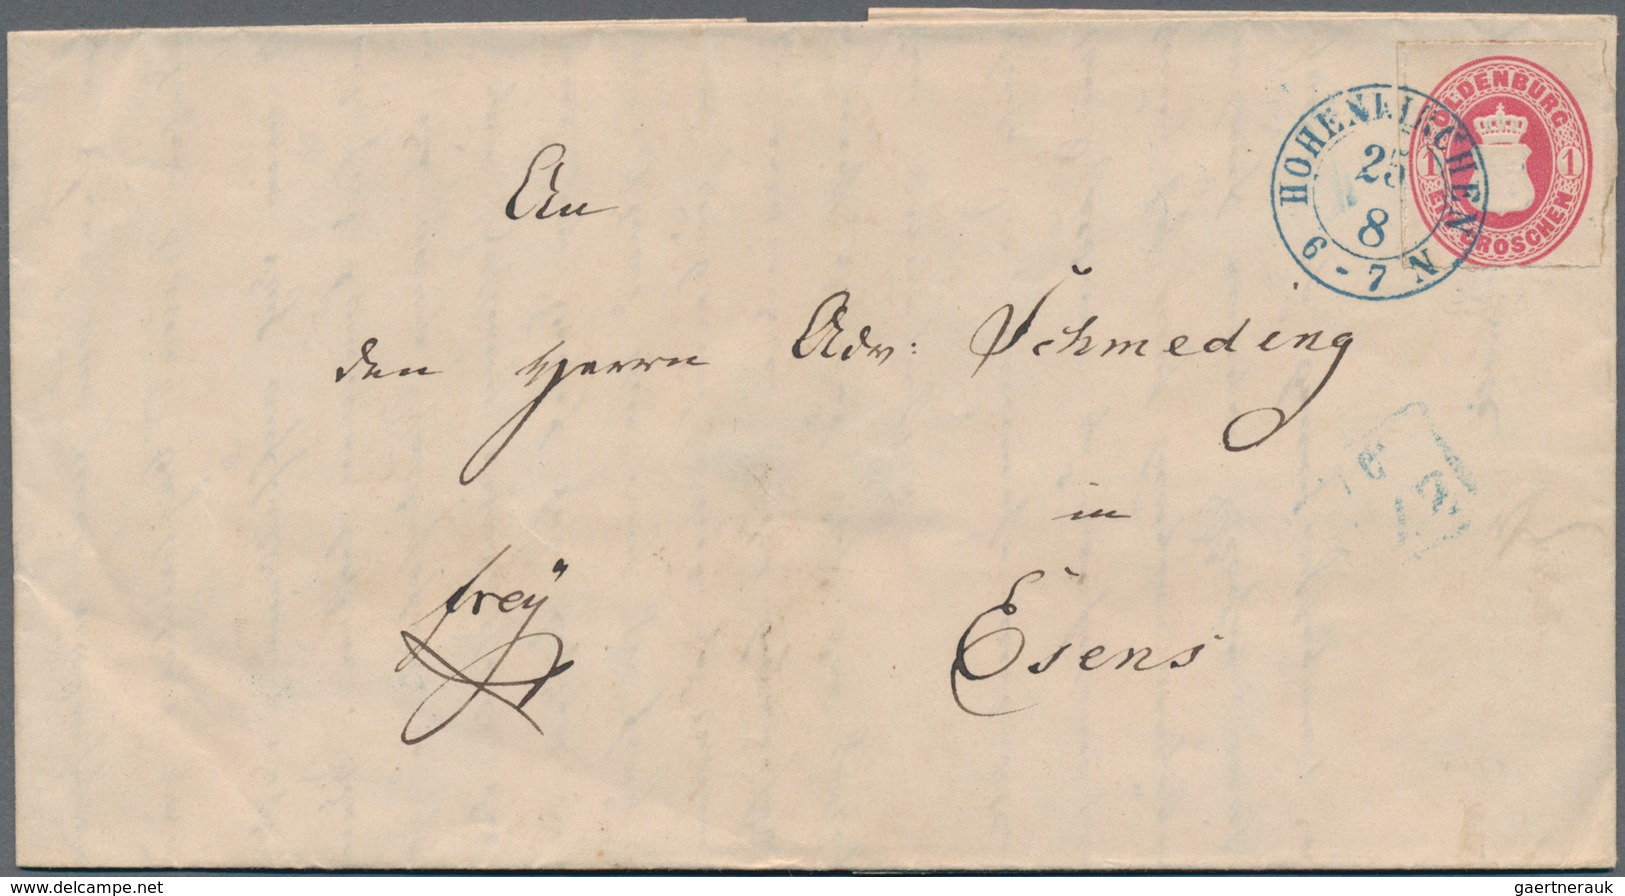 OLDENBURG
1 1
EIN GROSCHEN
HOHENKIRCHEN
25
8
6 - 7 N
An
den Herrn Adv: Schmeding
in
Esens
frey
12
www.delcampe.net
gaertnerauk